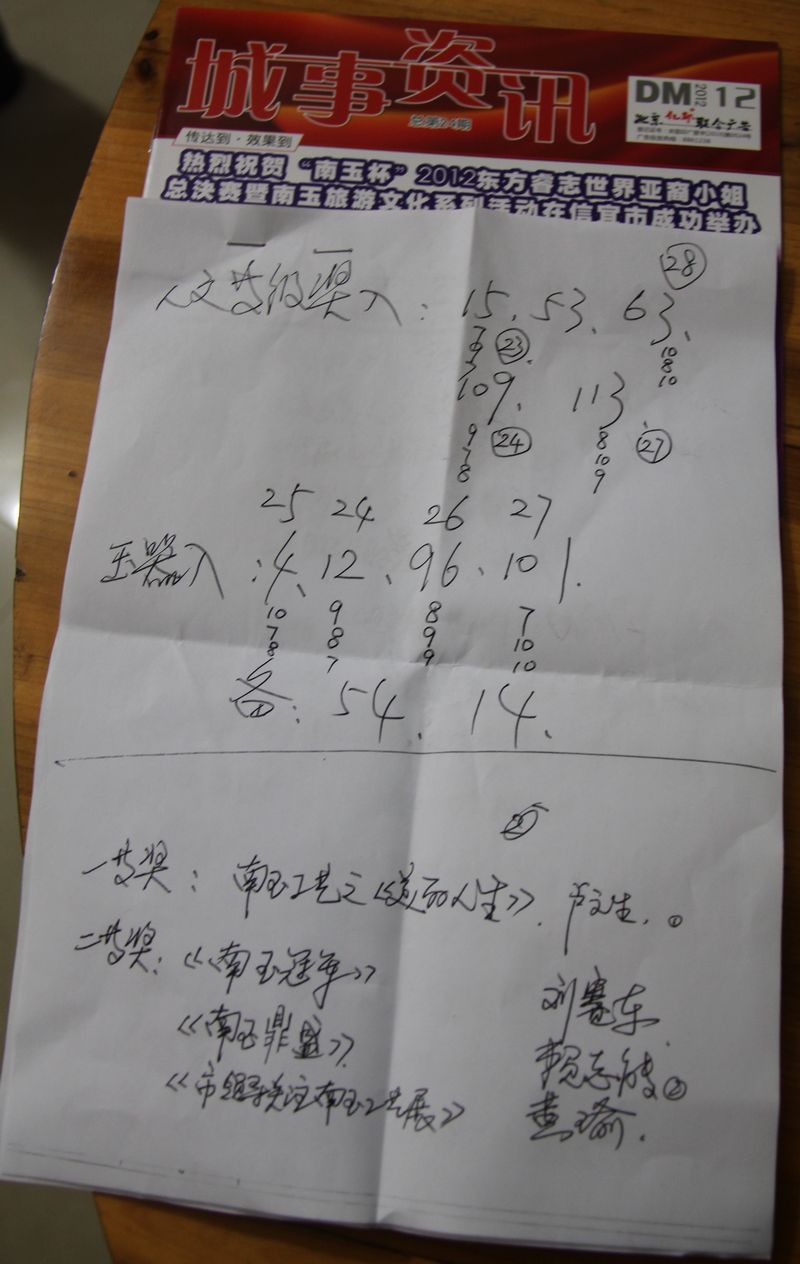 城事资讯
总第24期
DM 2012 12
传达到·效果到
热烈祝贺“南玉杯”2012东方睿志世界亚裔小姐
总决赛暨南玉旅游文化系列活动在信宜市成功举办
28
15、53、63、
7 23 10
9 8
7 10
109、 113、
9 24 8 27
7 10
8 9
25 24 26 27
玉器入:4、12、96、101.
10 9 8 7
7 8 9 10
8 7 9 10
备:54、14、
一等奖:南玉工艺之《道而人生》.卢文生.①
二等奖:《南玉冠军》 刘赛东
《南玉鼎盛》 赖志敏②
南玉工艺展》 黄瑜.